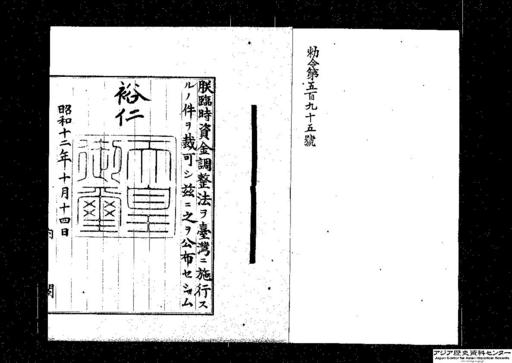 勅令第五百九十五號
朕臨時資金調整法ヲ臺灣ニ施行ス
ルノ件ヲ裁可シ茲ニ之ヲ公布セシム
裕仁
天皇
御璽
昭和十二年十月十四日
内閣
アジア歴史資料センター
Japan Center for Asian Historical Records